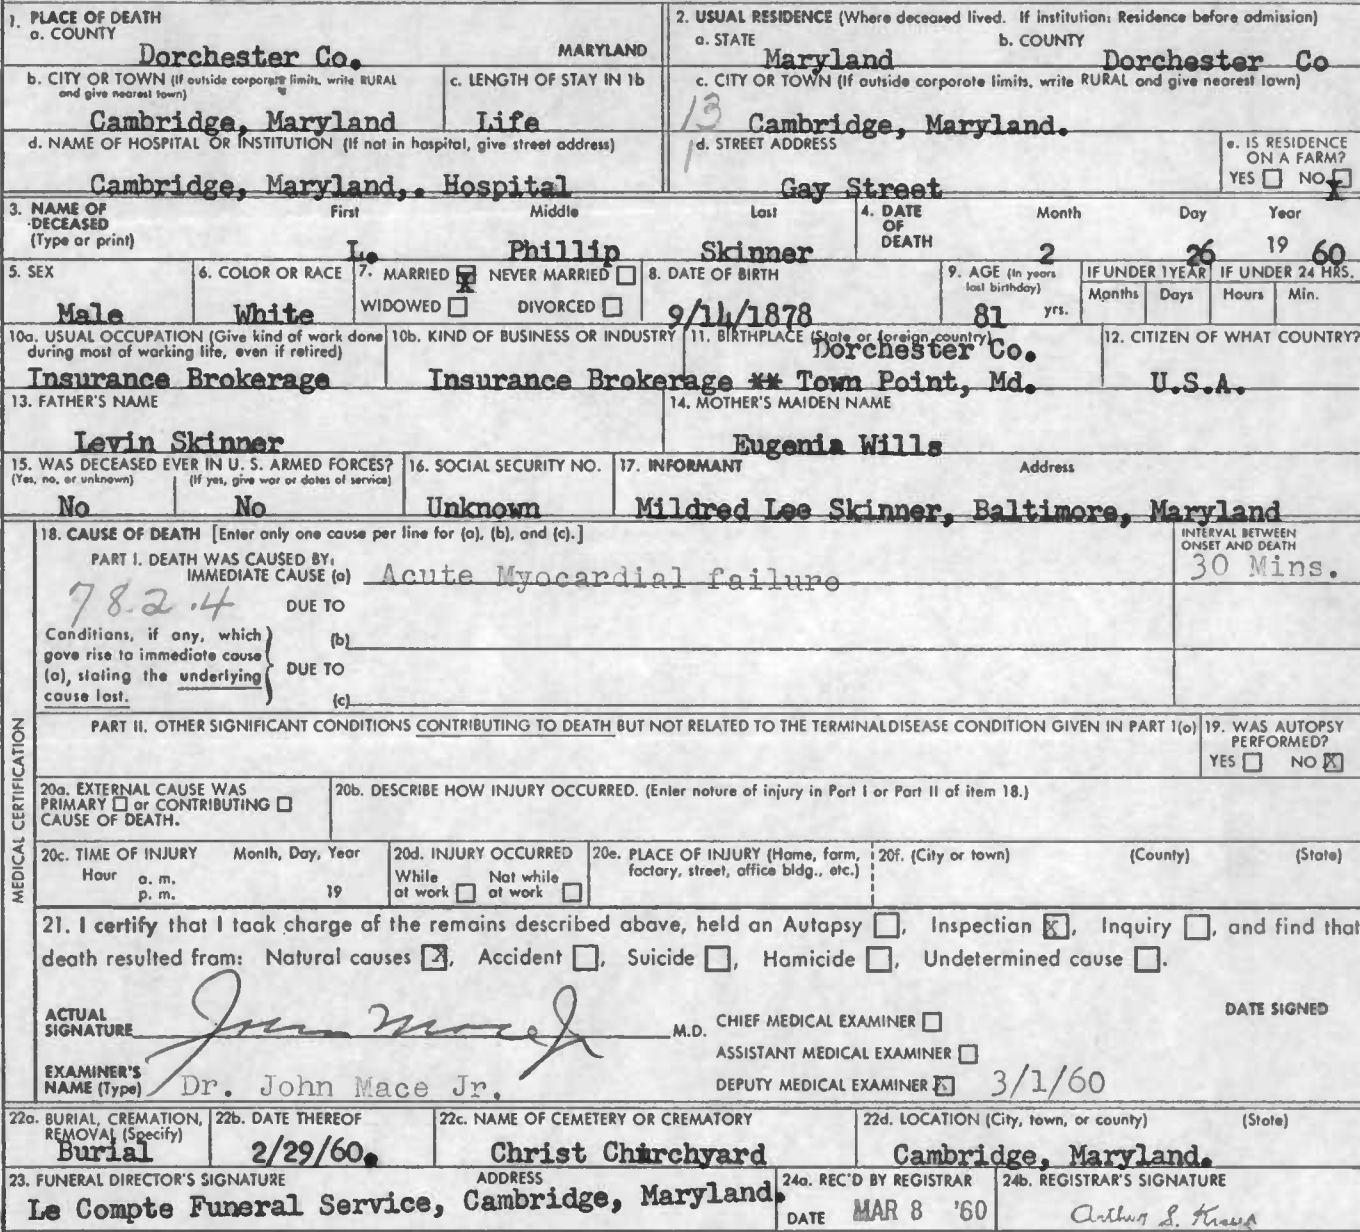 1. PLACE OF DEATH
a. COUNTY
Dorchester Co. MARYLAND
2. USUAL RESIDENCE (Where deceased lived. If institution: Residence before admission)
a. STATE b. COUNTY
Maryland Dorchester Co
b. CITY OR TOWN (If outside corporate limits, write RURAL and give nearest town)
Cambridge, Maryland
c. LENGTH OF STAY IN 1b
Life
c. CITY OR TOWN (If outside corporate limits, write RURAL and give nearest town)
13 Cambridge, Maryland.
d. NAME OF HOSPITAL OR INSTITUTION (If not in hospital, give street address)
Cambridge, Maryland,. Hospital
1 d. STREET ADDRESS
Gay Street
e. IS RESIDENCE ON A FARM?
YES NO X
3. NAME OF DECEASED (Type or print)
First Middle Last
L. Phillip Skinner
4. DATE OF DEATH
Month Day Year
2 26 19 60
5. SEX
Male
6. COLOR OR RACE
White
7. MARRIED X NEVER MARRIED
WIDOWED DIVORCED
8. DATE OF BIRTH
9/14/1878
9. AGE (In years last birthday)
81 yrs.
IF UNDER 1 YEAR IF UNDER 24 HRS.
Months Days Hours Min.
10a. USUAL OCCUPATION (Give kind of work done during most of working life, even if retired)
Insurance Brokerage
10b. KIND OF BUSINESS OR INDUSTRY
Insurance Brokerage **
11. BIRTHPLACE (State or foreign country)
Dorchester Co.
Town Point, Md.
12. CITIZEN OF WHAT COUNTRY?
U.S.A.
13. FATHER'S NAME
Levin Skinner
14. MOTHER'S MAIDEN NAME
Eugenia Wills
15. WAS DECEASED EVER IN U. S. ARMED FORCES?
(Yes, no, or unknown) (If yes, give war or dates of service)
No No
16. SOCIAL SECURITY NO.
Unknown
17. INFORMANT Address
Mildred Lee Skinner, Baltimore, Maryland
MEDICAL CERTIFICATION
18. CAUSE OF DEATH [Enter only one cause per line for (a), (b), and (c).]
INTERVAL BETWEEN ONSET AND DEATH
PART I. DEATH WAS CAUSED BY:
IMMEDIATE CAUSE (a) Acute Myocardial failure 30 Mins.
782.4 DUE TO
Conditions, if any, which gave rise to immediate cause (a), stating the underlying cause last.
(b)
DUE TO
(c)
PART II. OTHER SIGNIFICANT CONDITIONS CONTRIBUTING TO DEATH BUT NOT RELATED TO THE TERMINAL DISEASE CONDITION GIVEN IN PART 1(a)
19. WAS AUTOPSY PERFORMED?
YES NO X
20a. EXTERNAL CAUSE WAS PRIMARY or CONTRIBUTING CAUSE OF DEATH.
20b. DESCRIBE HOW INJURY OCCURRED. (Enter nature of injury in Part I or Part II of item 18.)
20c. TIME OF INJURY Month, Day, Year
Hour a. m.
p. m. 19
20d. INJURY OCCURRED
While at work Not while at work
20e. PLACE OF INJURY (Home, farm, factory, street, office bldg., etc.)
20f. (City or town) (County) (State)
21. I certify that I took charge of the remains described above, held an Autopsy , Inspection X, Inquiry , and find that
death resulted from: Natural causes X, Accident , Suicide , Homicide , Undetermined cause .
ACTUAL SIGNATURE John Mace Jr M.D.
CHIEF MEDICAL EXAMINER
DATE SIGNED
ASSISTANT MEDICAL EXAMINER
EXAMINER'S NAME (Type) Dr. John Mace Jr.
DEPUTY MEDICAL EXAMINER X 3/1/60
22a. BURIAL, CREMATION, REMOVAL (Specify)
Burial
22b. DATE THEREOF
2/29/60.
22c. NAME OF CEMETERY OR CREMATORY
Christ Churchyard
22d. LOCATION (City, town, or county) (State)
Cambridge, Maryland.
23. FUNERAL DIRECTOR'S SIGNATURE ADDRESS
Le Compte Funeral Service, Cambridge, Maryland.
24a. REC'D BY REGISTRAR
DATE MAR 8 '60
24b. REGISTRAR'S SIGNATURE
Arthur S. Kraus